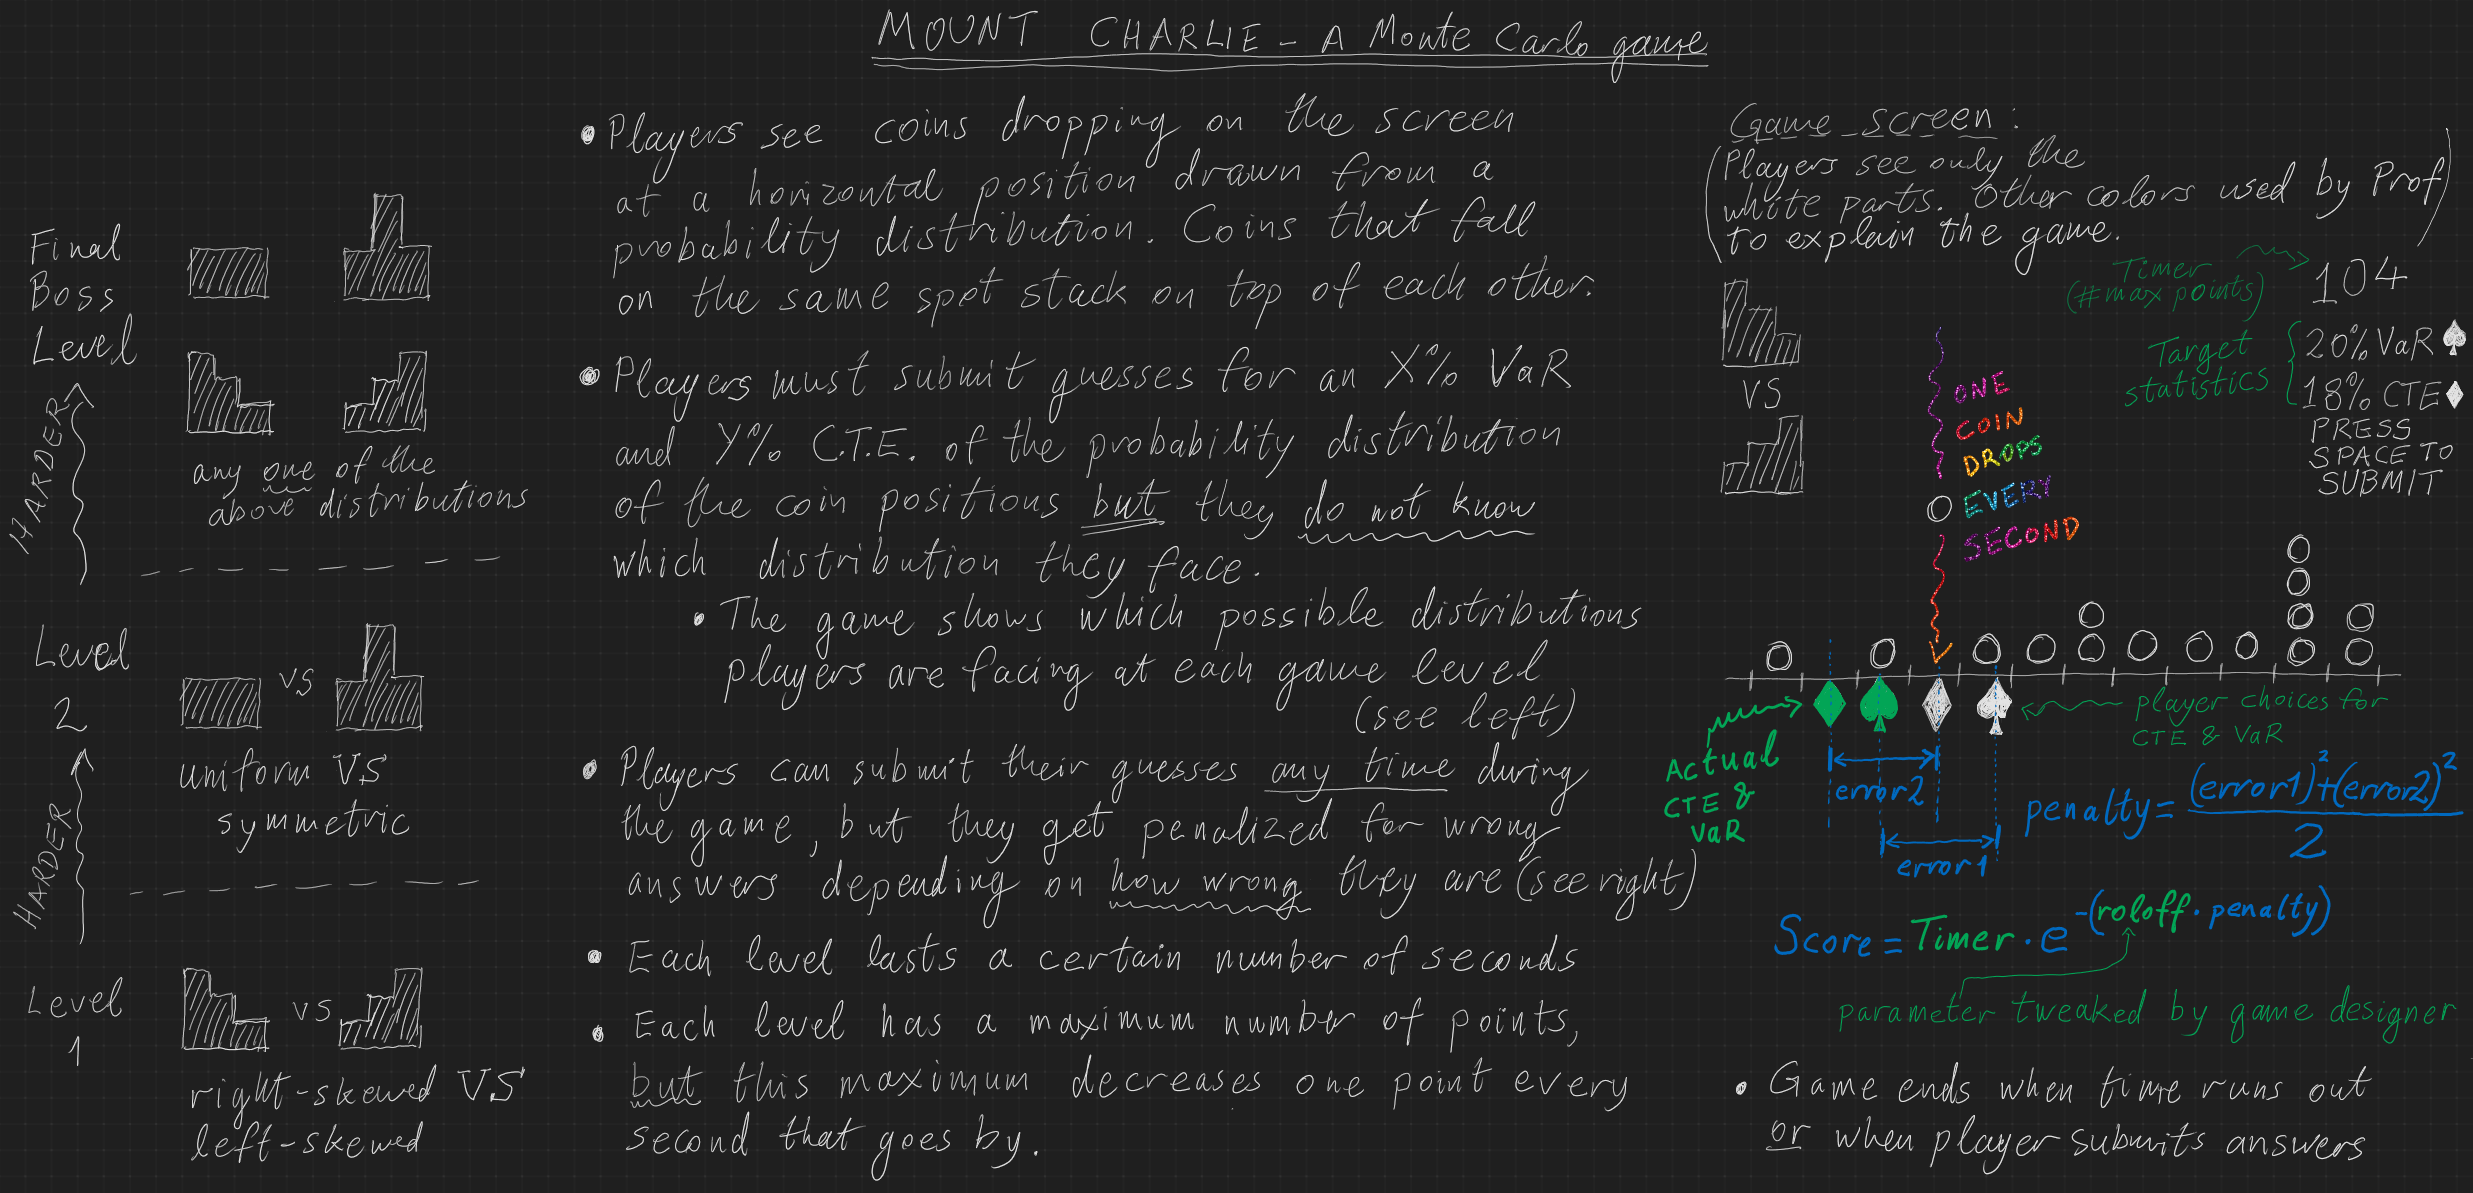 MOUNT CHARLIE - A Monte Carlo game
Final
Boss
Level
any one of the
above distributions
HARDER
Level
2
VS
uniform VS
symmetric
HARDER
Level
1
VS
right-skewed VS
left-skewed
• Players see coins dropping on the screen
at a horizontal position drawn from a
probability distribution. Coins that fall
on the same spot stack on top of each other.
• Players must submit guesses for an X% VaR
and Y% C.T.E. of the probability distribution
of the coin positions but they do not know
which distribution they face.
• The game shows which possible distributions
players are facing at each game level
(see left)
• Players can submit their guesses any time during
the game, but they get penalized for wrong
answers depending on how wrong they are (see right)
• Each level lasts a certain number of seconds
• Each level has a maximum number of points,
but this maximum decreases one point every
second that goes by.
Game screen:
(Players see only the
white parts. Other colors used by Prof
to explain the game.)
Timer
(#max points)
104
VS
Target
statistics
20% VaR ♠
18% CTE ♦
PRESS
SPACE TO
SUBMIT
ONE
COIN
DROPS
EVERY
SECOND
Actual
CTE &
VaR
player choices for
CTE & VaR
error2
error1
penalty = (error1)²+(error2)²
2
Score = Timer · e^-(roloff · penalty)
parameter tweaked by game designer
• Game ends when time runs out
or when player submits answers